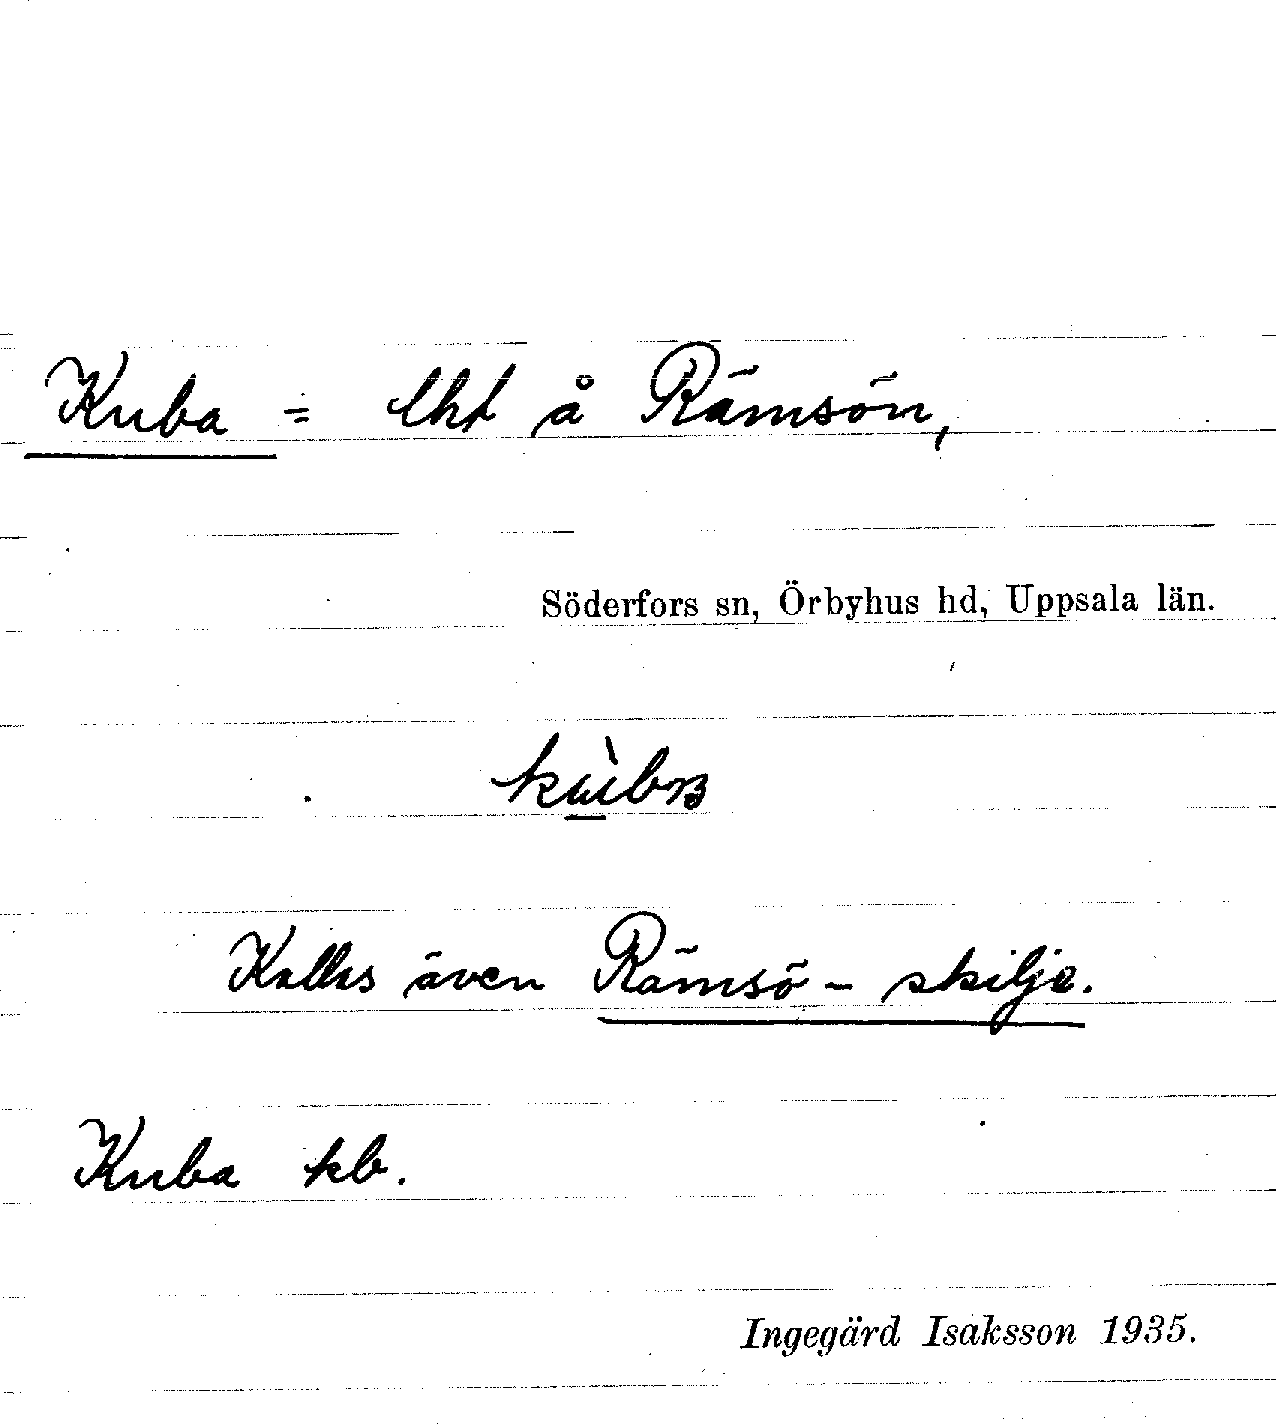 Kuba = lht å Rämsön,
Söderfors sn, Örbyhus hd, Uppsala län.
Kallas även Rämsö - skilje.
Kuba kb.
Ingegärd Isaksson 1935.